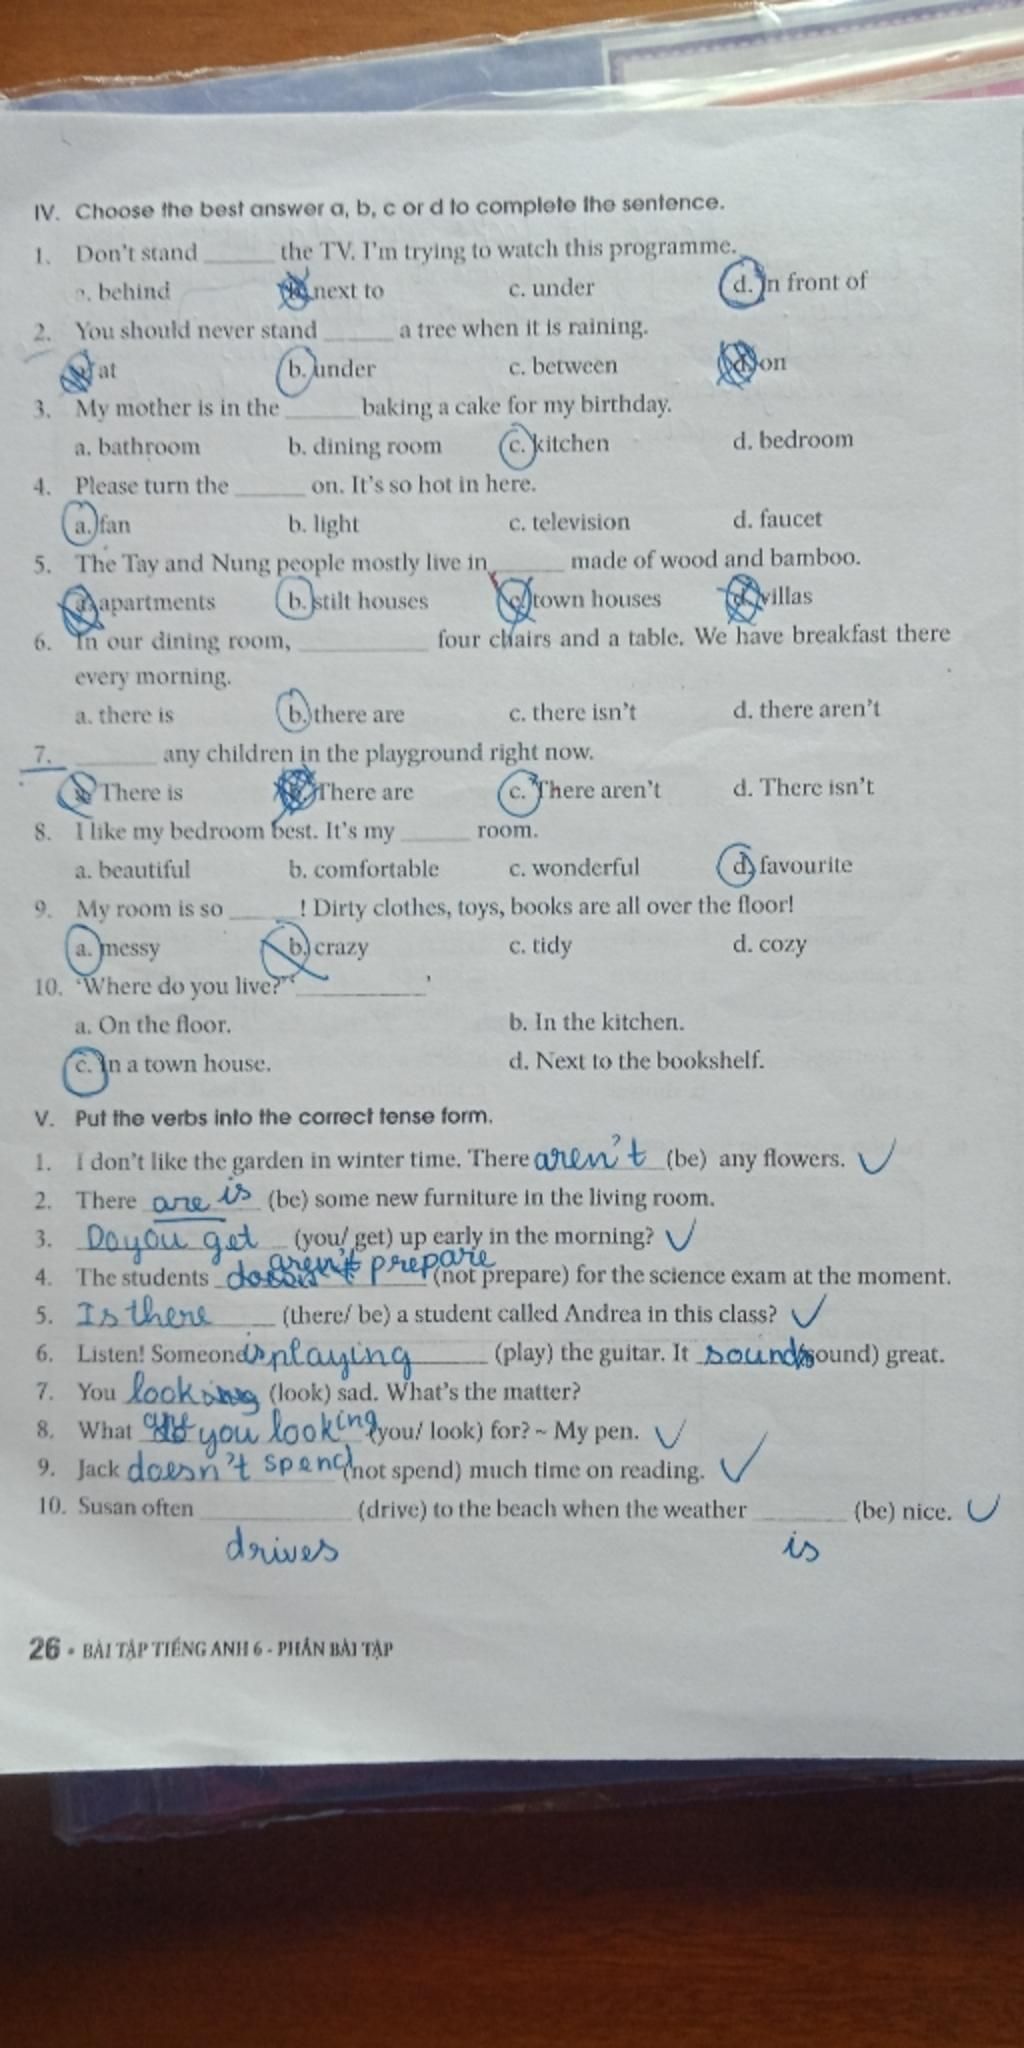 IV. Choose the best answer a, b, c or d to complete the sentence.
1. Don't stand ______ the TV. I'm trying to watch this programme.
a. behind b. next to c. under d. in front of
2. You should never stand ______ a tree when it is raining.
a. at b. under c. between d. on
3. My mother is in the ______ baking a cake for my birthday.
a. bathroom b. dining room c. kitchen d. bedroom
4. Please turn the ______ on. It's so hot in here.
a. fan b. light c. television d. faucet
5. The Tay and Nung people mostly live in ______ made of wood and bamboo.
a. apartments b. stilt houses c. town houses d. villas
6. In our dining room, ___________ four chairs and a table. We have breakfast there
every morning.
a. there is b. there are c. there isn't d. there aren't
7. _______ any children in the playground right now.
a. There is b. There are c. There aren't d. There isn't
8. I like my bedroom best. It's my ______ room.
a. beautiful b. comfortable c. wonderful d. favourite
9. My room is so ______! Dirty clothes, toys, books are all over the floor!
a. messy b. crazy c. tidy d. cozy
10. 'Where do you live?' '___________'
a. On the floor. b. In the kitchen.
c. In a town house. d. Next to the bookshelf.
V. Put the verbs into the correct tense form.
1. I don't like the garden in winter time. There aren't (be) any flowers.
2. There are is (be) some new furniture in the living room.
3. Do you get (you/ get) up early in the morning?
4. The students aren't prepare (not prepare) for the science exam at the moment.
5. Is there (there/ be) a student called Andrea in this class?
6. Listen! Someone is playing (play) the guitar. It sounds (sound) great.
7. You look (look) sad. What's the matter?
8. What are you looking (you/ look) for? ~ My pen.
9. Jack doesn't spend (not spend) much time on reading.
10. Susan often ____________ (drive) to the beach when the weather ________ (be) nice.
drives is
26 • BÀI TẬP TIẾNG ANH 6 - PHẦN BÀI TẬP